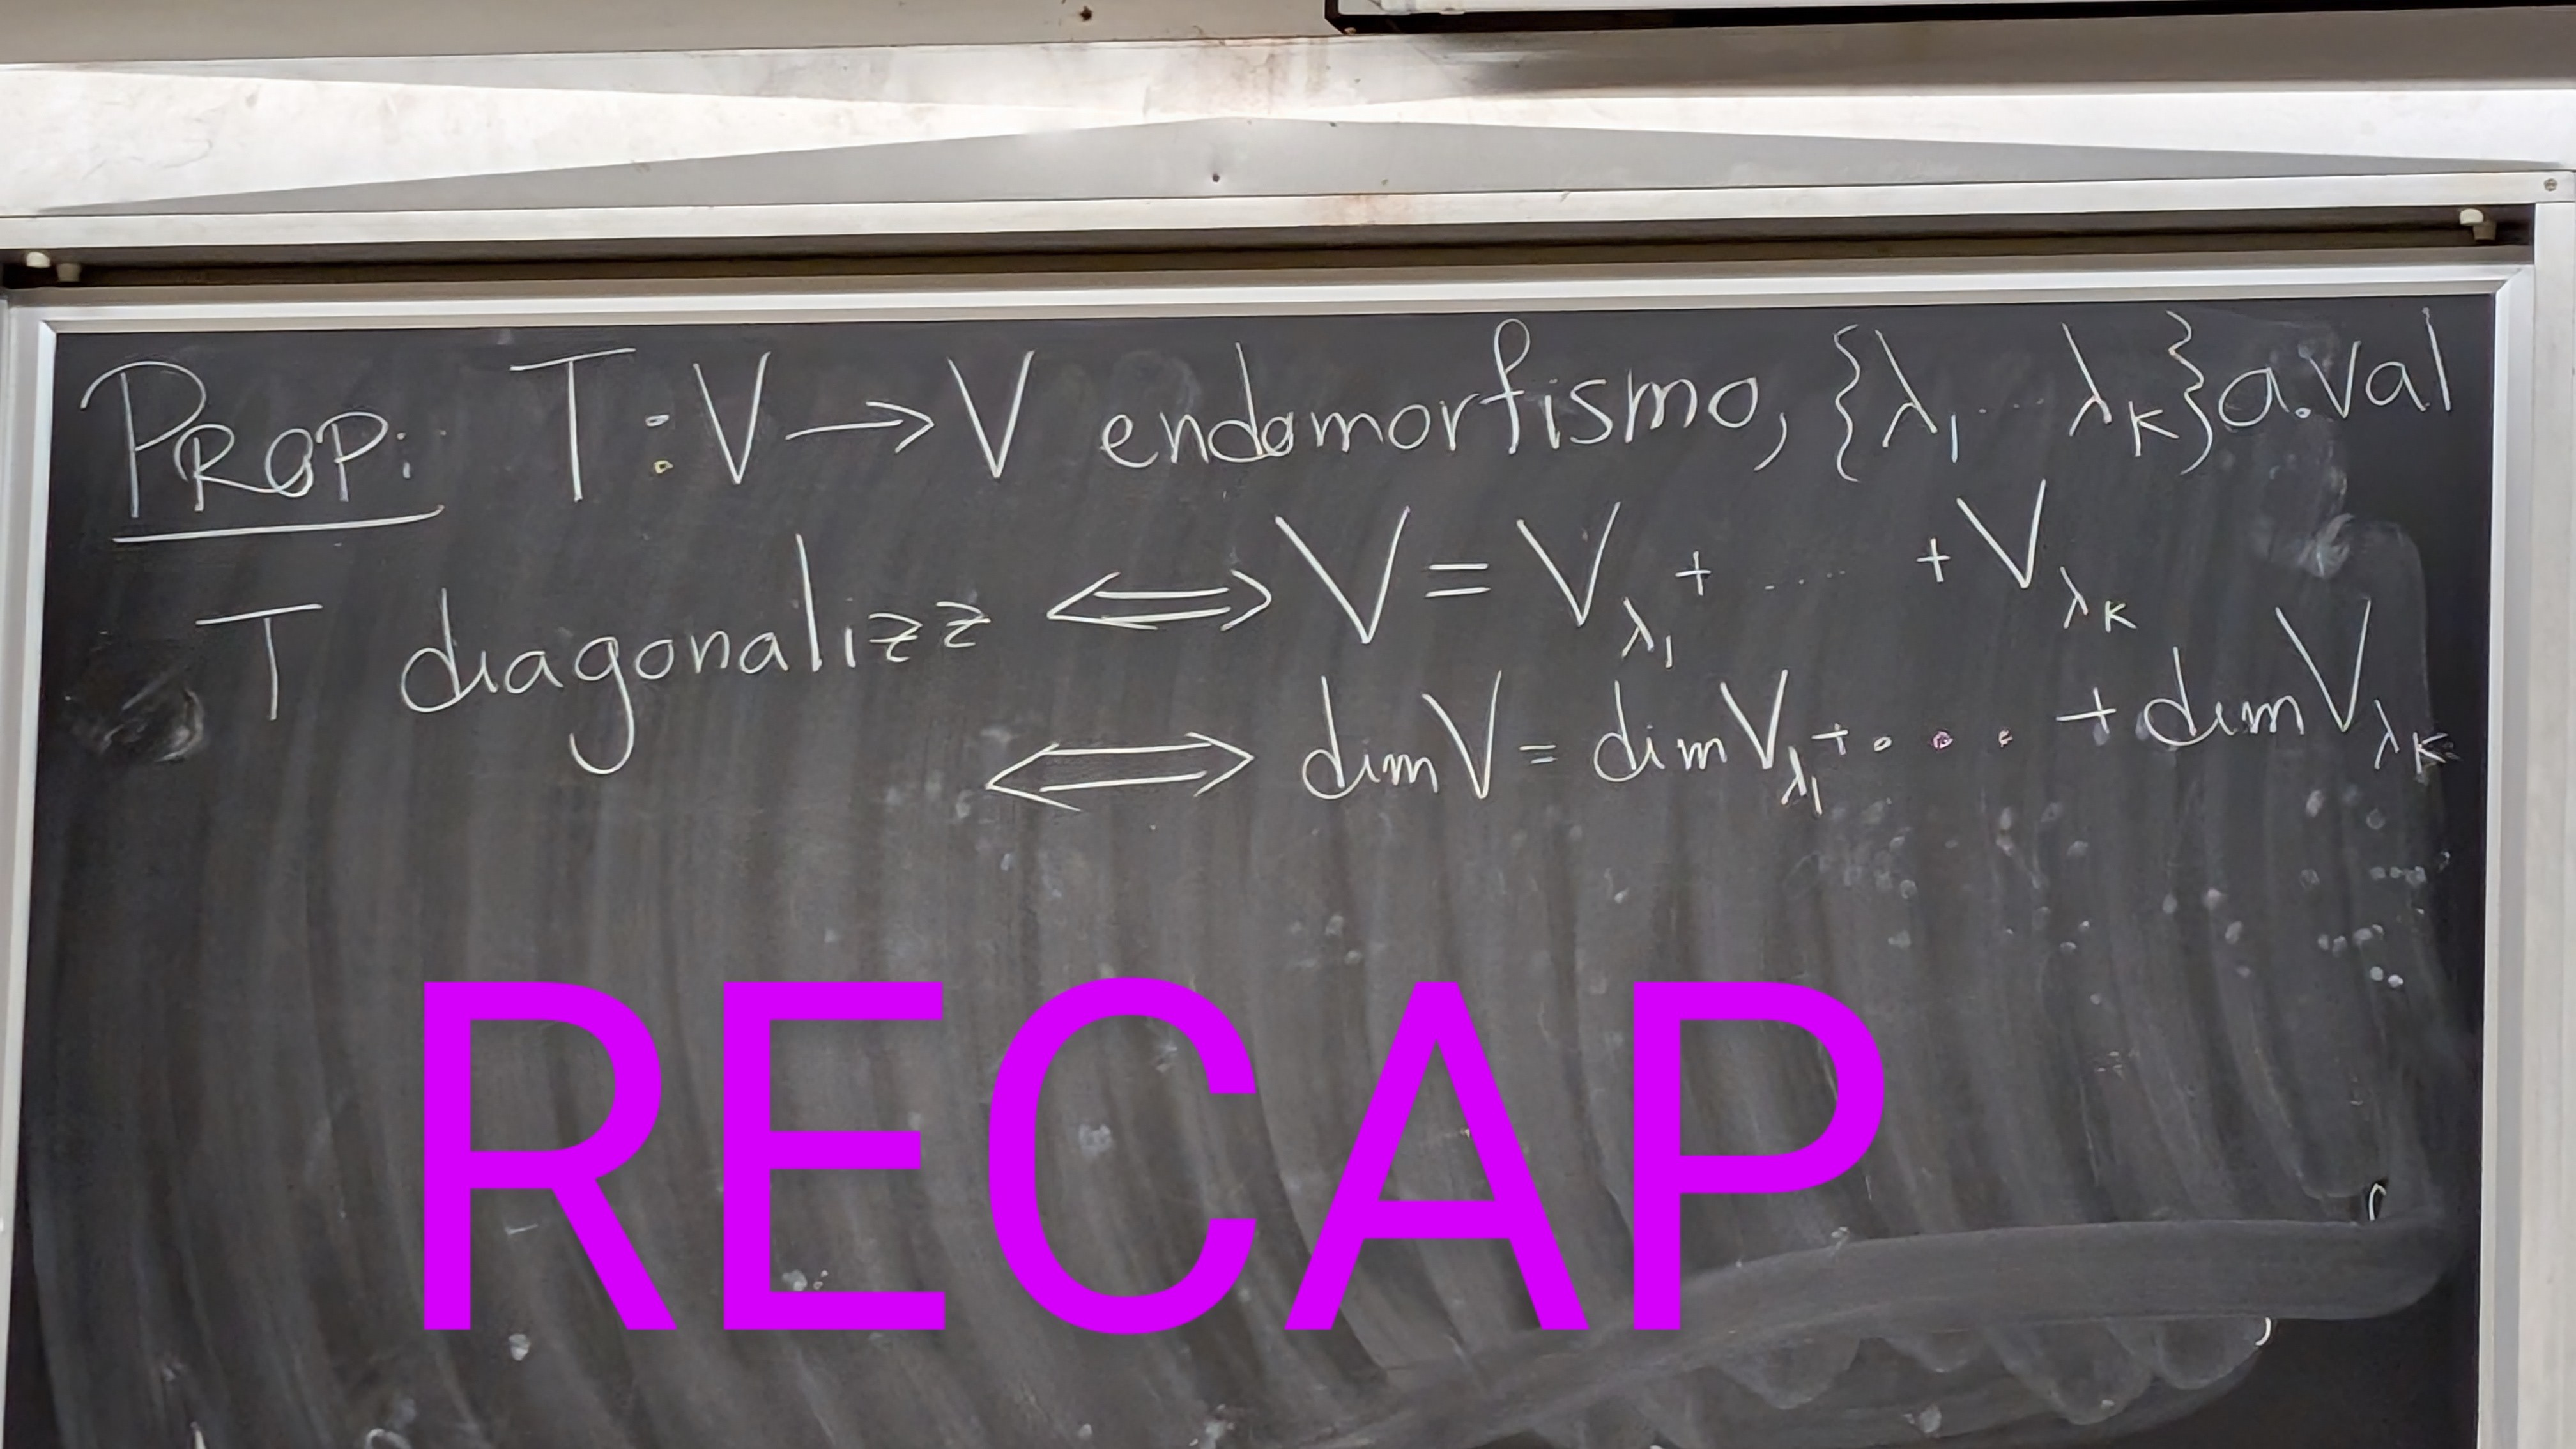 PROP: T:V→V endomorfismo, {λ₁...λₖ} a.val
T diagonalizz ⟺ V = V_λ₁ + ..... + V_λₖ
⟺ dim V = dim V_λ₁ + .... + dim V_λₖ
RECAP